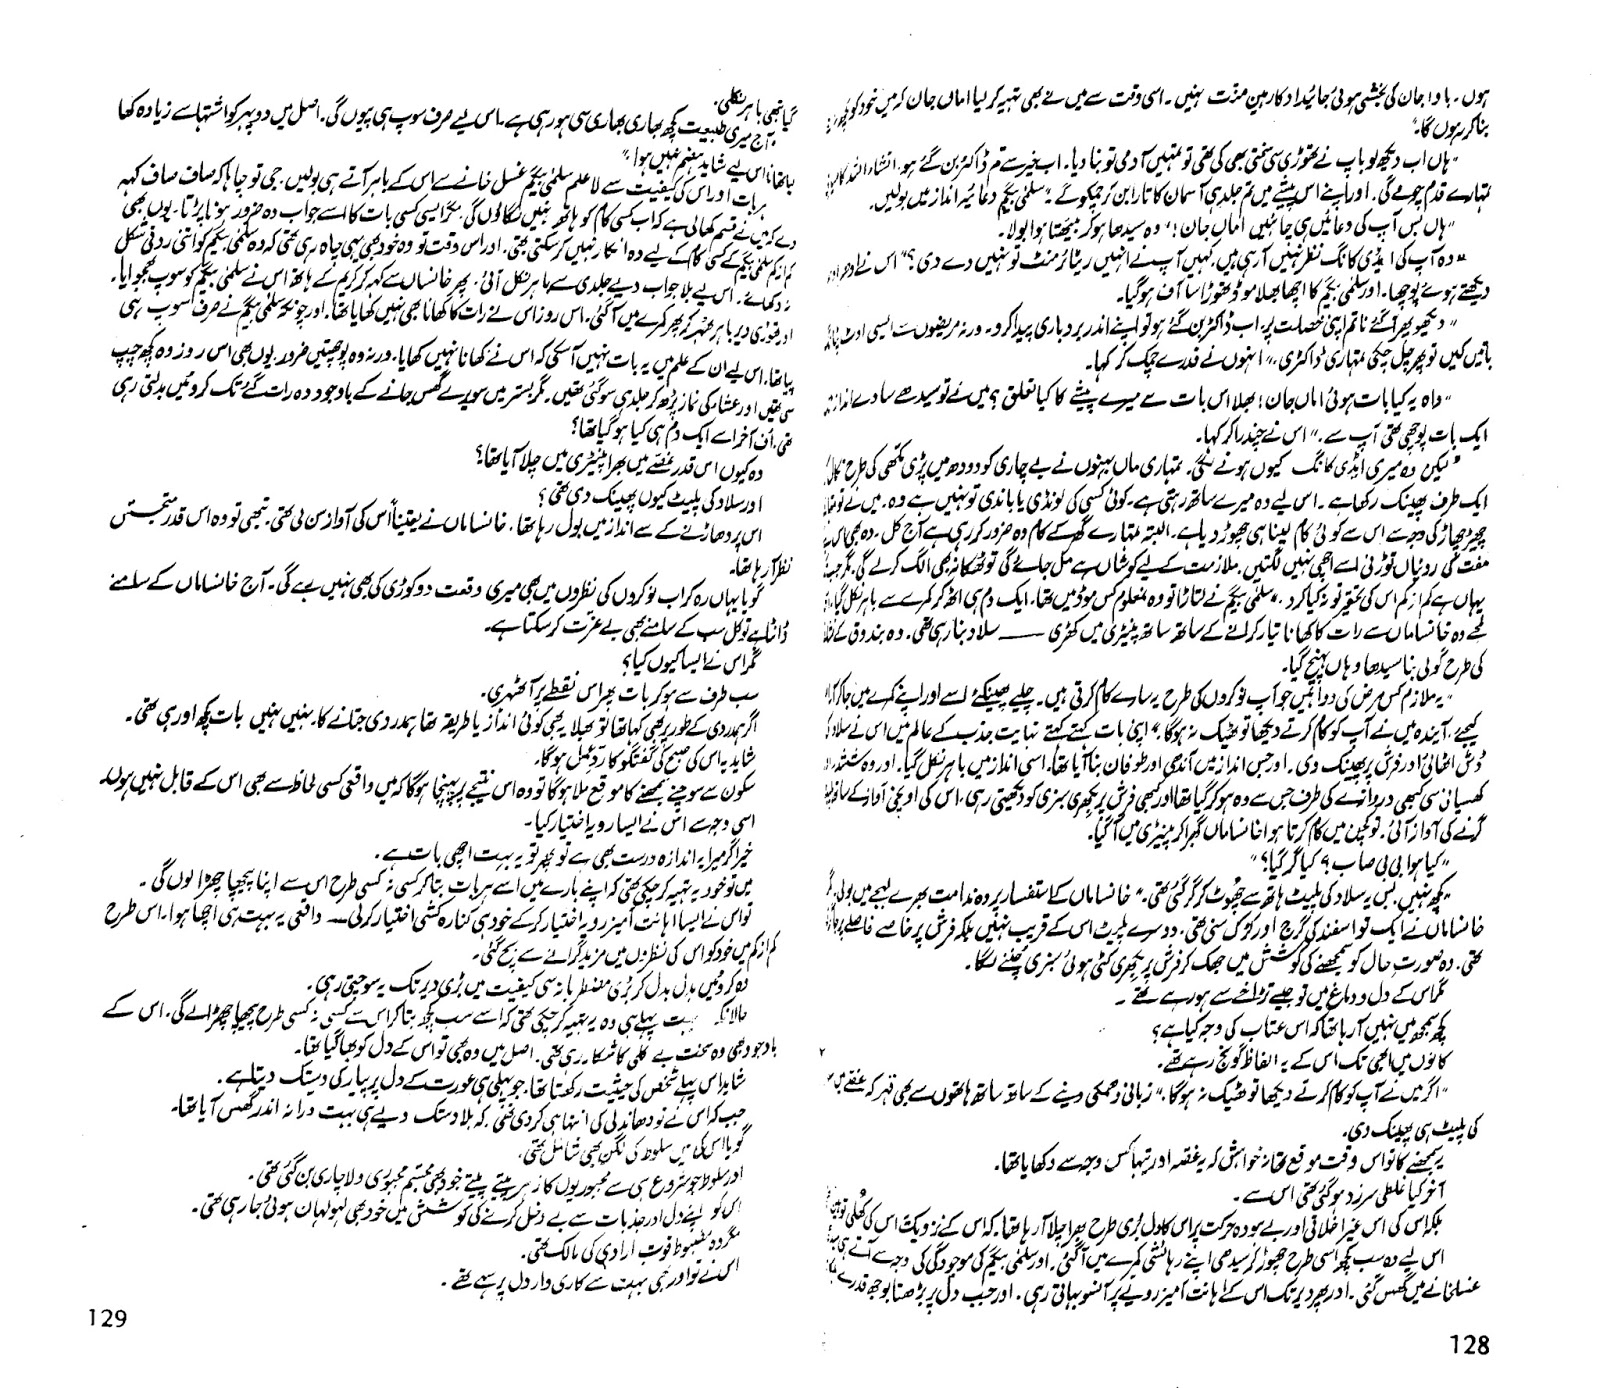 ہوں۔ باوا جان کی بخشی ہوئی جائیداد کا رہینِ منّت نہیں۔ اسی وقت سے میں نے بھی تہیہ کر لیا اماں جان کہ میں خود کو کچھ
بنا کر رہوں گا۔"
"ہاں اب دیکھو لو باپ نے تھوڑی سی سختی بھی کی تھی تو تمہیں آدمی تو بنا دیا۔ اب خیر سے تم ڈاکٹر بن گئے ہو، انشاء اللہ
تمہارے قدم چومے گی۔ اور اپنے اس پیشے میں تم جلد ہی آسمان کا تارا بن کر چمکو گے۔" سلمٰی بیگم دعائیہ انداز میں بولیں۔
"ہاں بس آپ کی دعائیں ہی چاہئیں اماں جان!" وہ سیدھا ہو کر بیٹھتا ہوا بولا۔
"وہ آپ کی ایڈی کانگ نظر نہیں آ رہی ہیں، کہیں آپ نے انہیں ریٹائرمنٹ تو نہیں دے دی؟" اس نے
دیکھتے ہوئے پوچھا۔ اور سلمٰی بیگم کا اچھا بھلا موڈ تھوڑا سا آف ہو گیا۔
"دیکھو پھر آ گئے نا تم اپنی خصلت پر، اب ڈاکٹر بن گئے ہو تو اپنے اندر بردباری پیدا کرو۔ ورنہ مریضوں سے ایسی اوٹ پٹانگ
باتیں کیں تو پھر چل چکی تمہاری ڈاکٹری۔" انہوں نے قدرے چمک کر کہا۔
"واہ یہ کیا بات ہوئی اماں جان! بھلا اس بات سے میرے پیشے کا کیا تعلق؟ میں نے تو سیدھے سادے انداز میں
ایک بات پوچھی تھی آپ سے۔" اس نے چندرا کر کہا۔
"لیکن وہ میری ایڈی کانگ کیوں ہونے لگی۔ تمہاری ماں بہنوں نے بے چاری کو دودھ میں پڑی مکھی کی طرح نکال
ایک طرف پھینک رکھا ہے۔ اس لیے وہ میرے ساتھ رہتی ہے۔ کوئی کسی کی لونڈی یا باندی تو نہیں ہے وہ۔ میں نے تو
چھیڑ چھاڑ کی وجہ سے اس سے کوئی کام لینا ہی چھوڑ دیا ہے۔ البتہ تمہارے گھر کے کام وہ ضرور کر رہی ہے آج کل۔ وہ بھی اس
مفت کی روٹیاں توڑنی اسے اچھی نہیں لگتیں۔ ملازمت کے لیے کوشاں ہے مل جائے گی تو ٹھکانہ بھی الگ کر لے گی، مگر جب
یہاں ہے کم از کم اس کی تحقیر تو نہ کیا کرو۔" سلمٰی بیگم نے لتاڑا تو وہ نہ معلوم کس موڈ میں تھا۔ ایک دم ہی اٹھ کر کمرے سے باہر نکل گیا،
لمحے وہ خانساماں سے رات کا کھانا تیار کرانے کے ساتھ ساتھ پینٹری میں کھڑی ——— سلاد بنا رہی تھی۔ وہ بندوق کے
کی طرح گولی بنا سیدھا وہاں پہنچ گیا۔
"یہ ملازم کس مرض کی دوا ہیں جو آپ نوکروں کی طرح یہ سارے کام کرتی ہیں۔ چلیے پھینکئے اسے اور اپنے کمرے میں جا کر آرام
کیجیے، آئندہ میں نے آپ کو کام کرتے دیکھا تو ٹھیک نہ ہو گا۔" اپنی بات کہتے کہتے نہایت جذب کے عالم میں اس نے سلاد
ڈش اٹھائی اور فرش پر پھینک دی۔ اور جس انداز میں آندھی اور طوفان بنا آیا تھا۔ اسی انداز میں باہر نکل گیا۔ اور وہ ششدر
کھسیانی سی کبھی دروازے کی طرف جس سے وہ ہو کر گیا تھا اور کبھی فرش پر بکھری سبزی کو دیکھتی رہی، اس کی اونچی آواز کے ساتھ
گرنے کی آواز آئی۔ تو کچن میں کام کرتا ہوا خانساماں گھبرا کر پینٹری میں آ گیا۔
"کیا ہوا بی بی صاب؟ کیا گر گیا؟"
"کچھ نہیں، بس یہ سلاد کی پلیٹ ہاتھ سے چھوٹ کر گر گئی تھی۔" خانساماں کے استفسار پر وہ ندامت بھرے لہجے میں بولی،
خانساماں نے ایک تو اسفند کی گرج اور کڑک سنی تھی۔ دوسرے پلیٹ اس کے قریب نہیں بلکہ فرش پر خاصے فاصلے پر
تھی۔ وہ صورتِ حال کو سمجھنے کی کوشش میں جھک کر فرش پر بکھری کٹی ہوئی سبزی چننے لگا۔
مگر اس کے دل و دماغ میں تو جیسے تڑاخے سے ہو رہے تھے۔
کچھ سمجھ میں نہیں آ رہا تھا کہ اس عتاب کی وجہ کیا ہے؟
کانوں میں ابھی تک اس کے یہ الفاظ گونج رہے تھے۔
"اگر میں نے آپ کو کام کرتے دیکھا تو ٹھیک نہ ہو گا۔" زبانی دھمکی دینے کے ساتھ ساتھ ہاتھوں سے بھی قہر کہ غصے میں
کی پلیٹ ہی پھینک دی۔
یہ سمجھنے کا تو اس وقت موقع تھا نہ خواہش کہ یہ غصہ اور تیہا کس وجہ سے دکھایا تھا۔
آخر کیا غلطی سرزد ہو گئی تھی اس سے۔
بلکہ اس کی اس غیر اخلاقی اور بے ہودہ حرکت پر اس کا دل بُری طرح بھرا چلا آ رہا تھا۔ کہ اس کے نزدیک اس کی کھلی توہین
اس لیے وہ سب کچھ اسی طرح چھوڑ کر سیدھی اپنے رہائشی کمرے میں آ گئی۔ اور سلمٰی بیگم کی موجودگی کی وجہ سے آتے ہی
غسلخانے میں گھس گئی۔ اور پھر دیر تک اس کے اہانت آمیز رویے پر آنسو بہاتی رہی۔ اور جب دل پر پڑھتا بوجھ قدرے
128
گیا تبھی باہر نکلی۔
"آج میری طبیعت کچھ بھاری بھاری سی ہو رہی ہے۔ اس لیے صرف سوپ ہی پیوں گی۔ اصل میں دوپہر کو اشتہا سے زیادہ کھا
لیا تھا۔ اس لیے شاید ہضم نہیں ہوا۔"
ہر بات اور اس کی کیفیت سے لاعلم سلمٰی بیگم غسل خانے سے اس کے باہر آتے ہی بولیں۔ جی تو چاہا کہ صاف صاف کہہ
دے کہ میں نے قسم کھا لی ہے کہ اب کسی کام کو ہاتھ نہیں لگاؤں گی۔ مگر ایسی کسی بات کا اسے جواب دہ ضرور ہونا پڑتا۔ یوں بھی
کم از کم سلمٰی بیگم کے کسی کام کے لیے وہ انکار نہیں کر سکتی تھی۔ اور اس وقت تو وہ خود بھی یہی چاہ رہی تھی کہ وہ سلمٰی بیگم کو اتنی روتی شکل
نہ دکھائے۔ اس لیے بلا جواب دیے جلدی سے باہر نکل آئی۔ پھر خانساماں سے کہہ کر کریم کے ہاتھ اس نے سلمٰی بیگم کو سوپ بھجوایا۔
اور تھوڑی دیر باہر ٹھہر کر پھر کمرے میں آ گئی۔ اس روز اس نے رات کا کھانا بھی نہیں کھایا تھا۔ اور چونکہ سلمٰی بیگم نے صرف سوپ ہی
پیا تھا۔ اس لیے ان کے علم میں یہ بات نہیں آ سکی کہ اس نے کھانا نہیں کھایا۔ ورنہ وہ پوچھتیں ضرور۔ یوں بھی اس روز وہ کچھ چپ
سی تھیں اور عشاء کی نماز پڑھ کر جلد ہی سو گئی تھیں۔ مگر بستر میں سویرے گھس جانے کے باوجود وہ رات گئے تک کروٹیں بدلتی رہی
تھی۔ اُف آخر اسے ایک دم ہی کیا ہو گیا تھا؟
وہ کیوں اس قدر غصّے میں بھرا پینٹری میں چلا آیا تھا؟
اور سلاد کی پلیٹ کیوں پھینک دی تھی؟
اس پر دھاڑنے کے سے انداز میں بول رہا تھا۔ خانساماں نے یقیناً اُس کی آواز سن لی تھی۔ تبھی تو وہ اس قدر متجسّس
نظر آ رہا تھا۔
گویا یہاں رہ کر اب نوکروں کی نظروں میں بھی میری وقعت دو کوڑی کی بھی نہیں رہے گی۔ آج خانساماں کے سامنے
ڈانٹا ہے تو کل سب کے سامنے بھی بے عزت کر سکتا ہے۔
مگر اس نے ایسا کیوں کیا؟
سب طرف سے ہو کر بات پھر اس نقطے پر آ ٹھہری۔
اگر ہمدردی کے طور پر بھی کہا تھا تو بھلا یہ بھی کوئی انداز یا طریقہ تھا ہمدردی جتانے کا۔ نہیں نہیں بات کچھ اور ہی تھی۔
شاید یہ اس کی صبح کی گفتگو کا ردِّ عمل ہو گا۔
سکون سے سوچنے سمجھنے کا موقع ملا ہو گا تو وہ اس نتیجے پر پہنچا ہو گا کہ میں واقعی کسی لحاظ سے بھی اس کے قابل نہیں ہوں۔
اسی وجہ سے اس نے ایسا رویہ اختیار کیا۔
خیر اگر میرا یہ اندازہ درست بھی ہے تو پھر تو یہ بہت اچھی بات ہے۔
میں تو خود یہ تہیہ کر چکی تھی کہ اپنے بارے میں اسے ہر بات بتا کر کسی نہ کسی طرح اس سے اپنا پیچھا چھڑا لوں گی۔
تو اس نے ایسا اہانت آمیز رویہ اختیار کر کے خود ہی کنارہ کشی اختیار کر لی — واقعی یہ بہت ہی اچھا ہوا۔ اس طرح
کم از کم میں خود کو اس کی نظروں میں مزید گرانے سے بچ گئی۔
وہ کروٹیں بدل بدل کر بڑی مضطربانہ سی کیفیت میں بڑی دیر تک یہ سوچتی رہی۔
حالانکہ بہت پہلے ہی وہ یہ تہیہ کر چکی تھی کہ اسے سب کچھ بتا کر اس سے کسی نہ کسی طرح پیچھا چھڑا لے گی۔ اس کے
باوجود بھی وہ سخت بے کلی کا شکار رہی تھی۔ اصل میں وہ بھی تو اس کے دل کو بھا گیا تھا۔
شاید اس پہلے شخص کی حیثیت رکھتا تھا۔ جو پہلی ہی عورت کے دل پر پیار کی دستک دیتا ہے۔
جب کہ اس نے تو دھاندلی کی انتہا ہی کر دی تھی۔ کہ بلا دستک دیے ہی بہت درانہ اندر گھس آیا تھا۔
گویا اس کی میں سلوط کی لگن بھی شامل تھی۔
اور سلوط جو شروع ہی سے مجبوریوں کا زہر پیتے پیتے خود بھی مجسّم مجبوری و لاچاری بن گئی تھی۔
اس کو اپنے دل اور جذبات سے بے دخل کرنے کی کوشش میں خود بھی لہولہان ہوئی جا رہی تھی۔
مگر وہ مضبوط قوتِ ارادی کی مالک تھی۔
اس نے تو اور بھی بہت سے کاری وار دل پر سہے تھے۔
129